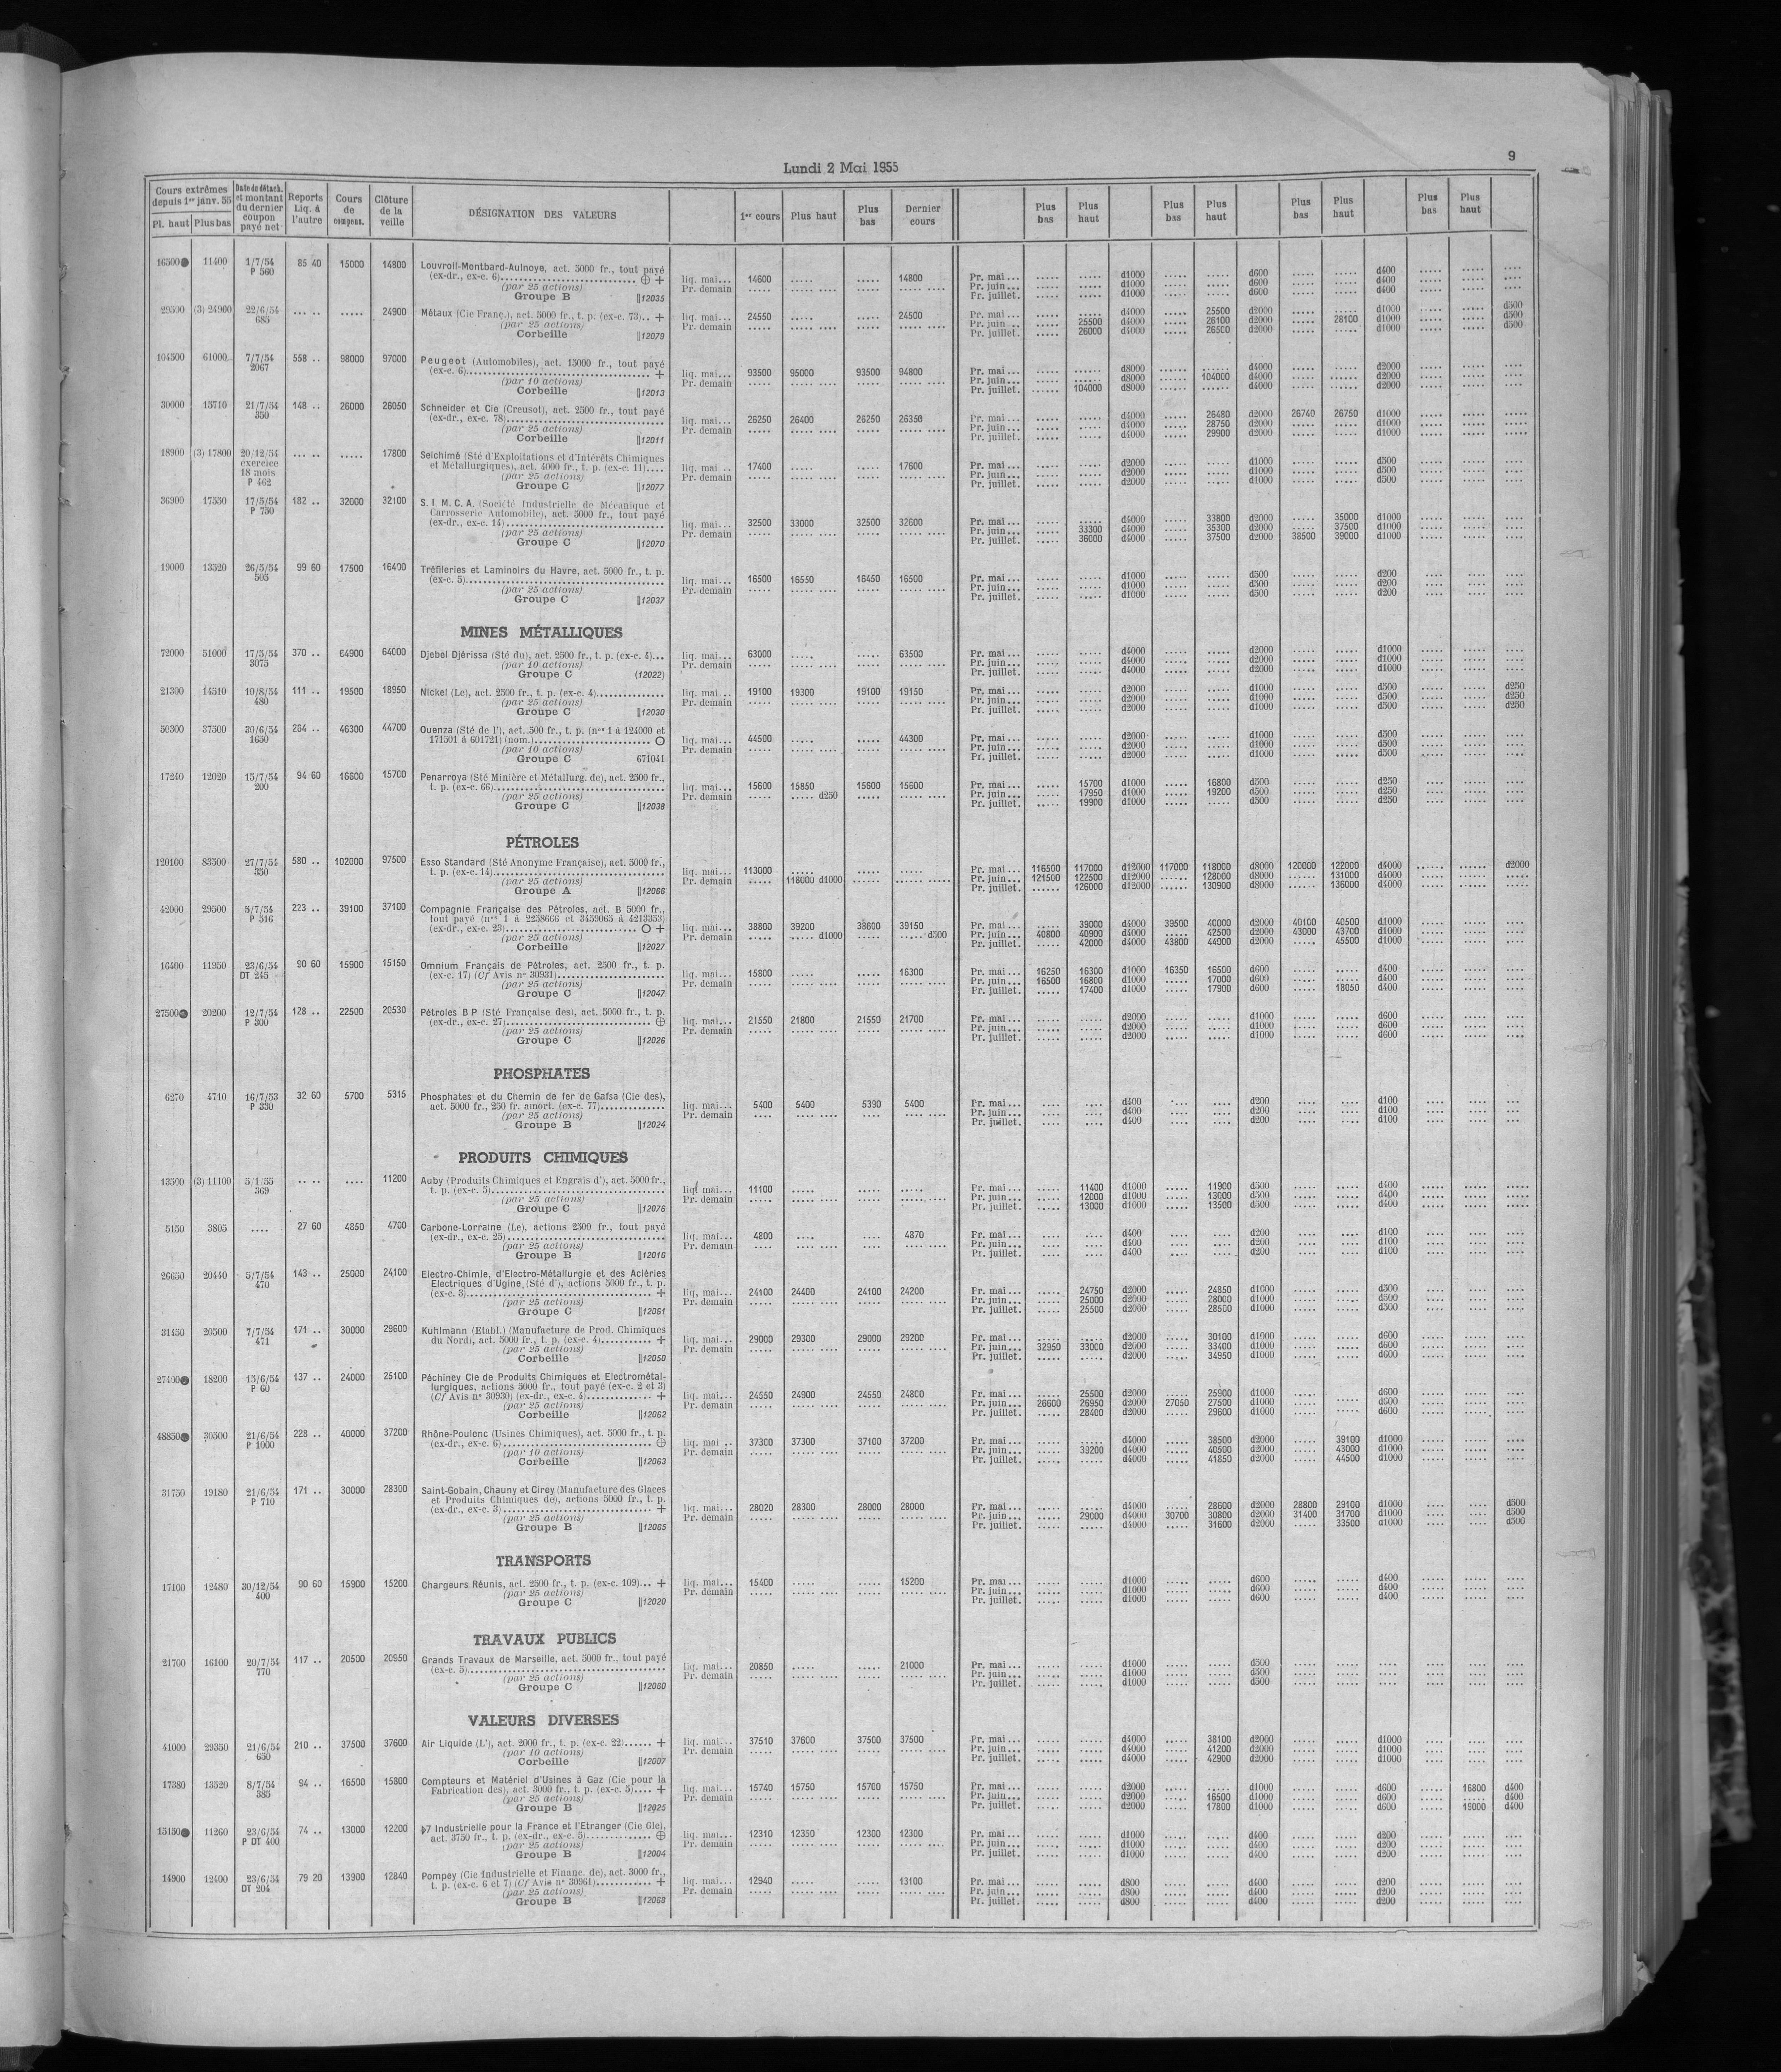 Lundi 2 Mai 1955
9
Cours extrêmes depuis 1er janv. 55 Date de détach. et montant du dernier coupon payé net Reports Liq. à l'autre Cours de compens. Clôture de la veille DÉSIGNATION DES VALEURS 1er cours Plus haut Plus bas Dernier cours Plus bas Plus haut Plus bas Plus haut Plus bas Plus haut Plus bas Plus haut
Pl. haut Plus bas
16500 11400 1/7/54 85 40 15000 14800 Louvroil-Montbard-Aulnoye, act. 5000 fr., tout payé
P 560 (ex-dr., ex-c. 6) ⊕ + liq. mai... 14600 ..... ..... 14800 Pr. mai ... ..... ..... d1000 ..... ..... d600 ..... ..... d400
(par 25 actions) Pr. demain Pr. juin... d1000 d600 d400
Groupe B ||12035 Pr. juillet. d1000 d600 d400
29500 (3) 24900 22/6/54 ... .. ..... 24900 Métaux (Cie Franç.), act. 5000 fr., t. p. (ex-c. 73).. + liq. mai... 24550 ..... ..... 24500 Pr. mai ... d4000 25500 d2000 d1000 d500
685 (par 25 actions) Pr. demain Pr. juin ... 25500 d4000 26100 d2000 28100 d1000 d500
Corbeille ||12079 Pr. juillet. 26000 d4000 26500 d2000 d1000 d500
104500 61000 7/7/54 558 .. 98000 97000 Peugeot (Automobiles), act. 15000 fr., tout payé
2067 (ex-c. 6) + liq. mai... 93500 95000 93500 94800 Pr. mai ... d8000 d4000 d2000
(par 10 actions) Pr. demain Pr. juin... d8000 104000 d4000 d2000
Corbeille ||12013 Pr. juillet. 104000 d8000 d4000 d2000
30000 15710 21/7/54 148 .. 26000 26050 Schneider et Cie (Creusot), act. 2500 fr., tout payé
350 (ex-dr., ex-c. 78) liq. mai... 26250 26400 26250 26350 Pr. mai ... d4000 26480 d2000 26740 26750 d1000
(par 25 actions) Pr. demain Pr. juin... d4000 28750 d2000 d1000
Corbeille ||12011 Pr. juillet. d4000 29900 d2000 d1000
18900 (3) 17800 20/12/54 ... .. ..... 17800 Seichimé (Sté d'Exploitations et d'Intérêts Chimiques
exercice et Métallurgiques), act. 4000 fr., t. p. (ex-c. 11).... liq. mai .. 17400 ..... ..... 17600 Pr. mai ... d2000 d1000 d500
18 mois (par 25 actions) Pr. demain Pr. juin... d2000 d1000 d500
P 462 Groupe C ||12077 Pr. juillet. d2000 d1000 d500
36900 17550 17/5/54 182 .. 32000 32100 S. I. M. C. A. (Société Industrielle de Mécanique et
P 750 Carrosserie Automobile), act. 5000 fr., tout payé
(ex-dr., ex-c. 14) liq. mai... 32500 33000 32500 32600 Pr. mai ... d4000 33800 d2000 35000 d1000
(par 25 actions) Pr. demain Pr. juin... 33300 d4000 35300 d2000 37500 d1000
Groupe C ||12070 Pr. juillet. 36000 d4000 37500 d2000 38500 39000 d1000
19000 13520 26/5/54 99 60 17500 16400 Tréfileries et Laminoirs du Havre, act. 5000 fr., t. p.
505 (ex-c. 5) liq. mai... 16500 16550 16450 16500 Pr. mai ... d1000 d500 d200
(par 25 actions) Pr. demain Pr. juin... d1000 d500 d200
Groupe C ||12037 Pr. juillet. d1000 d500 d200
MINES MÉTALLIQUES
72000 51000 17/5/54 370 .. 64900 64000 Djebel Djérissa (Sté du), act. 2500 fr., t. p. (ex-c. 4)... liq. mai... 63000 ..... ..... 63500 Pr. mai ... d4000 d2000 d1000
3075 (par 10 actions) Pr. demain Pr. juin... d4000 d2000 d1000
Groupe C (12022) Pr. juillet. d4000 d2000 d1000
21300 14510 10/8/54 111 .. 19500 18950 Nickel (Le), act. 2500 fr., t. p. (ex-c. 4) liq. mai... 19100 19300 19100 19150 Pr. mai ... d2000 d1000 d500 d250
480 (par 25 actions) Pr. demain Pr. juin... d2000 d1000 d500 d250
Groupe C ||12030 Pr. juillet. d2000 d1000 d500 d250
50300 37500 30/6/54 264 .. 46300 44700 Ouenza (Sté de l'), act. 500 fr., t. p. (nos 1 à 124000 et
1650 171501 à 601721) (nom.) O liq. mai... 44500 ..... ..... 44300 Pr. mai ... d2000 d1000 d500
(par 10 actions) Pr. demain Pr. juin... d2000 d1000 d500
Groupe C 671041 Pr. juillet. d2000 d1000 d500
17240 12020 15/7/54 94 60 16600 15700 Penarroya (Sté Minière et Métallurg. de), act. 2500 fr.,
200 t. p. (ex-c. 66) liq. mai... 15600 15850 15600 15600 Pr. mai ... 15700 d1000 16800 d500 d250
(par 25 actions) Pr. demain d250 Pr. juin... 17950 d1000 19200 d500 d250
Groupe C ||12038 Pr. juillet. 19900 d1000 d500 d250
PÉTROLES
120100 83500 27/7/54 580 .. 102000 97500 Esso Standard (Sté Anonyme Française), act. 5000 fr.,
350 t. p. (ex-c. 14) liq. mai... 113000 Pr. mai ... 116500 117000 d12000 117000 118000 d8000 120000 122000 d4000 d2000
(par 25 actions) Pr. demain 118000 d1000 Pr. juin... 121500 122500 d12000 128000 d8000 131000 d4000
Groupe A ||12066 Pr. juillet. 126000 d12000 130900 d8000 136000 d4000
42000 29500 5/7/54 223 .. 39100 37100 Compagnie Française des Pétroles, act. B 5000 fr.,
P 516 tout payé (nos 1 à 2258666 et 3459065 à 4213353)
(ex-dr., ex-c. 23) O + liq. mai... 38800 39200 38600 39150 Pr. mai ... 39000 d4000 39500 40000 d2000 40100 40500 d1000
(par 25 actions) Pr. demain d1000 d500 Pr. juin... 40800 40900 d4000 42500 d2000 43000 43700 d1000
Corbeille ||12027 Pr. juillet. 42000 d4000 43800 44000 d2000 45500 d1000
16400 11950 23/6/54 90 60 15900 15150 Omnium Français de Pétroles, act. 2500 fr., t. p.
DT 245 (ex-c. 17) (Cf Avis n° 30931) liq. mai... 15800 ..... ..... 16300 Pr. mai ... 16250 16300 d1000 16350 16500 d600 d400
(par 25 actions) Pr. demain Pr. juin... 16500 16800 d1000 17000 d600 d400
Groupe C ||12047 Pr. juillet. 17400 d1000 17900 d600 18050 d400
27500 20200 12/7/54 128 .. 22500 20530 Pétroles B P (Sté Française des), act. 5000 fr., t. p.
P 300 (ex-dr., ex-c. 27) ⊕ liq. mai... 21550 21800 21550 21700 Pr. mai ... d2000 d1000 d600
(par 25 actions) Pr. demain Pr. juin... d2000 d1000 d600
Groupe C ||12026 Pr. juillet. d2000 d1000 d600
PHOSPHATES
6270 4710 16/7/53 32 60 5700 5315 Phosphates et du Chemin de fer de Gafsa (Cie des),
P 330 act. 5000 fr., 250 fr. amort. (ex-c. 77) liq. mai... 5400 5400 5390 5400 Pr. mai ... d400 d200 d100
(par 25 actions) Pr. demain Pr. juin... d400 d200 d100
Groupe B ||12024 Pr. juillet. d400 d200 d100
PRODUITS CHIMIQUES
13500 (3) 11100 5/1/55 .. .. .... 11200 Auby (Produits Chimiques et Engrais d'), act. 5000 fr.,
369 t. p. (ex-c. 5) liq. mai... 11100 Pr. mai ... 11400 d1000 11900 d500 d400
(par 25 actions) Pr. demain Pr. juin... 12000 d1000 13000 d500 d400
Groupe C ||12076 Pr. juillet. 13000 d1000 13500 d500 d400
5150 3805 .... 27 60 4850 4700 Carbone-Lorraine (Le), actions 2500 fr., tout payé
(ex-dr., ex-c. 25) liq. mai... 4800 .... .... 4870 Pr. mai ... d400 d200 d100
(par 25 actions) Pr. demain Pr. juin... d400 d200 d100
Groupe B ||12016 Pr. juillet. d400 d200 d100
26650 20440 5/7/54 143 .. 25000 24100 Electro-Chimie, d'Electro-Métallurgie et des Aciéries
470 Electriques d'Ugine (Sté d'), actions 5000 fr., t. p.
(ex-c. 3) + liq. mai... 24100 24400 24100 24200 Pr. mai ... 24750 d2000 24850 d1000 d500
(par 25 actions) Pr. demain Pr. juin... 25000 d2000 28000 d1000 d500
Groupe C ||12061 Pr. juillet. 25500 d2000 28500 d1000 d500
31450 20500 7/7/54 171 .. 30000 29600 Kuhlmann (Etabl.) (Manufacture de Prod. Chimiques
471 du Nord), act. 5000 fr., t. p. (ex-c. 4) + liq. mai... 29000 29300 29000 29200 Pr. mai ... d2000 30100 d1000 d600
(par 25 actions) Pr. demain Pr. juin... 32950 33000 d2000 33400 d1000 d600
Corbeille ||12050 Pr. juillet. d2000 34950 d1000 d600
27400 18200 15/6/54 137 .. 24000 25100 Péchiney Cie de Produits Chimiques et Electrométal-
P 60 lurgiques, actions 5000 fr., tout payé (ex-c. 2 et 3)
(Cf Avis n° 30930) (ex-dr., ex-c. 4) + liq. mai... 24550 24900 24550 24800 Pr. mai ... 25500 d2000 25900 d1000 d600
(par 25 actions) Pr. demain Pr. juin... 26600 26950 d2000 27050 27500 d1000 d600
Corbeille ||12062 Pr. juillet. 28400 d2000 29600 d1000 d600
48850 30500 21/6/54 228 .. 40000 37200 Rhône-Poulenc (Usines Chimiques), act. 5000 fr., t. p.
P 1000 (ex-dr., ex-c. 6) ⊕ liq. mai .. 37300 37300 37100 37200 Pr. mai ... d4000 38500 d2000 39100 d1000
(par 10 actions) Pr. demain Pr. juin... 39200 d4000 40500 d2000 43000 d1000
Corbeille ||12063 Pr. juillet. d4000 41850 d2000 44500 d1000
31750 19180 21/6/54 171 .. 30000 28300 Saint-Gobain, Chauny et Cirey (Manufacture des Glaces
P 710 et Produits Chimiques de), actions 5000 fr., t. p.
(ex-dr., ex-c. 3) + liq. mai... 28020 28300 28000 28000 Pr. mai ... d4000 28600 d2000 28800 29100 d1000 d500
(par 25 actions) Pr. demain Pr. juin... 29000 d4000 30700 30800 d2000 31400 31700 d1000 d500
Groupe B ||12065 Pr. juillet. d4000 31600 d2000 33500 d1000 d500
TRANSPORTS
17100 12480 30/12/54 90 60 15900 15200 Chargeurs Réunis, act. 2500 fr., t. p. (ex-c. 109)... + liq. mai... 15400 ..... ..... 15200 Pr. mai ... d1000 d600 d400
400 (par 25 actions) Pr. demain Pr. juin... d1000 d600 d400
Groupe C ||12020 Pr. juillet. d1000 d600 d400
TRAVAUX PUBLICS
21700 16100 20/7/54 117 .. 20500 20550 Grands Travaux de Marseille, act. 5000 fr., tout payé
770 (ex-c. 5) liq. mai... 20850 ..... ..... 21000 Pr. mai ... d1000 d500
(par 25 actions) Pr. demain Pr. juin... d1000 d500
Groupe C ||12060 Pr. juillet. d1000 d500
VALEURS DIVERSES
41000 29350 21/6/54 210 .. 37500 37600 Air Liquide (L'), act. 2000 fr., t. p. (ex-c. 22)...... + liq. mai... 37510 37600 37500 37500 Pr. mai ... d4000 38100 d2000 d1000
650 (par 10 actions) Pr. demain Pr. juin... d4000 41200 d2000 d1000
Corbeille ||12007 Pr. juillet. d4000 42900 d2000 d1000
17380 13520 8/7/54 94 .. 16500 15800 Compteurs et Matériel d'Usines à Gaz (Cie pour la
385 Fabrication des), act. 3000 fr., t. p. (ex-c. 5).... + liq. mai... 15740 15750 15700 15750 Pr. mai ... d2000 d1000 d600 16800 d400
(par 25 actions) Pr. demain Pr. juin... d2000 16500 d1000 d600 d400
Groupe B ||12025 Pr. juillet. d2000 17800 d1000 d600 19000 d400
15150 11260 23/6/54 74 .. 13000 12200 Industrielle pour la France et l'Etranger (Cie Gle),
P DT 400 act. 3750 fr., t. p. (ex-dr., ex-c. 5) ⊕ liq. mai... 12310 12350 12300 12300 Pr. mai ... d1000 d400 d200
(par 25 actions) Pr. demain Pr. juin... d1000 d400 d200
Groupe B ||12004 Pr. juillet. d1000 d400 d200
14900 12400 23/6/54 79 20 13900 12840 Pompey (Cie Industrielle et Financ. de), act. 3000 fr.,
DT 204 t. p. (ex-c. 6 et 7) (Cf Avis n° 30961) + liq. mai... 12940 ..... ..... 13100 Pr. mai ... d800 d400 d200
(par 25 actions) Pr. demain Pr. juin... d800 d400 d200
Groupe B ||12068 Pr. juillet. d800 d400 d200